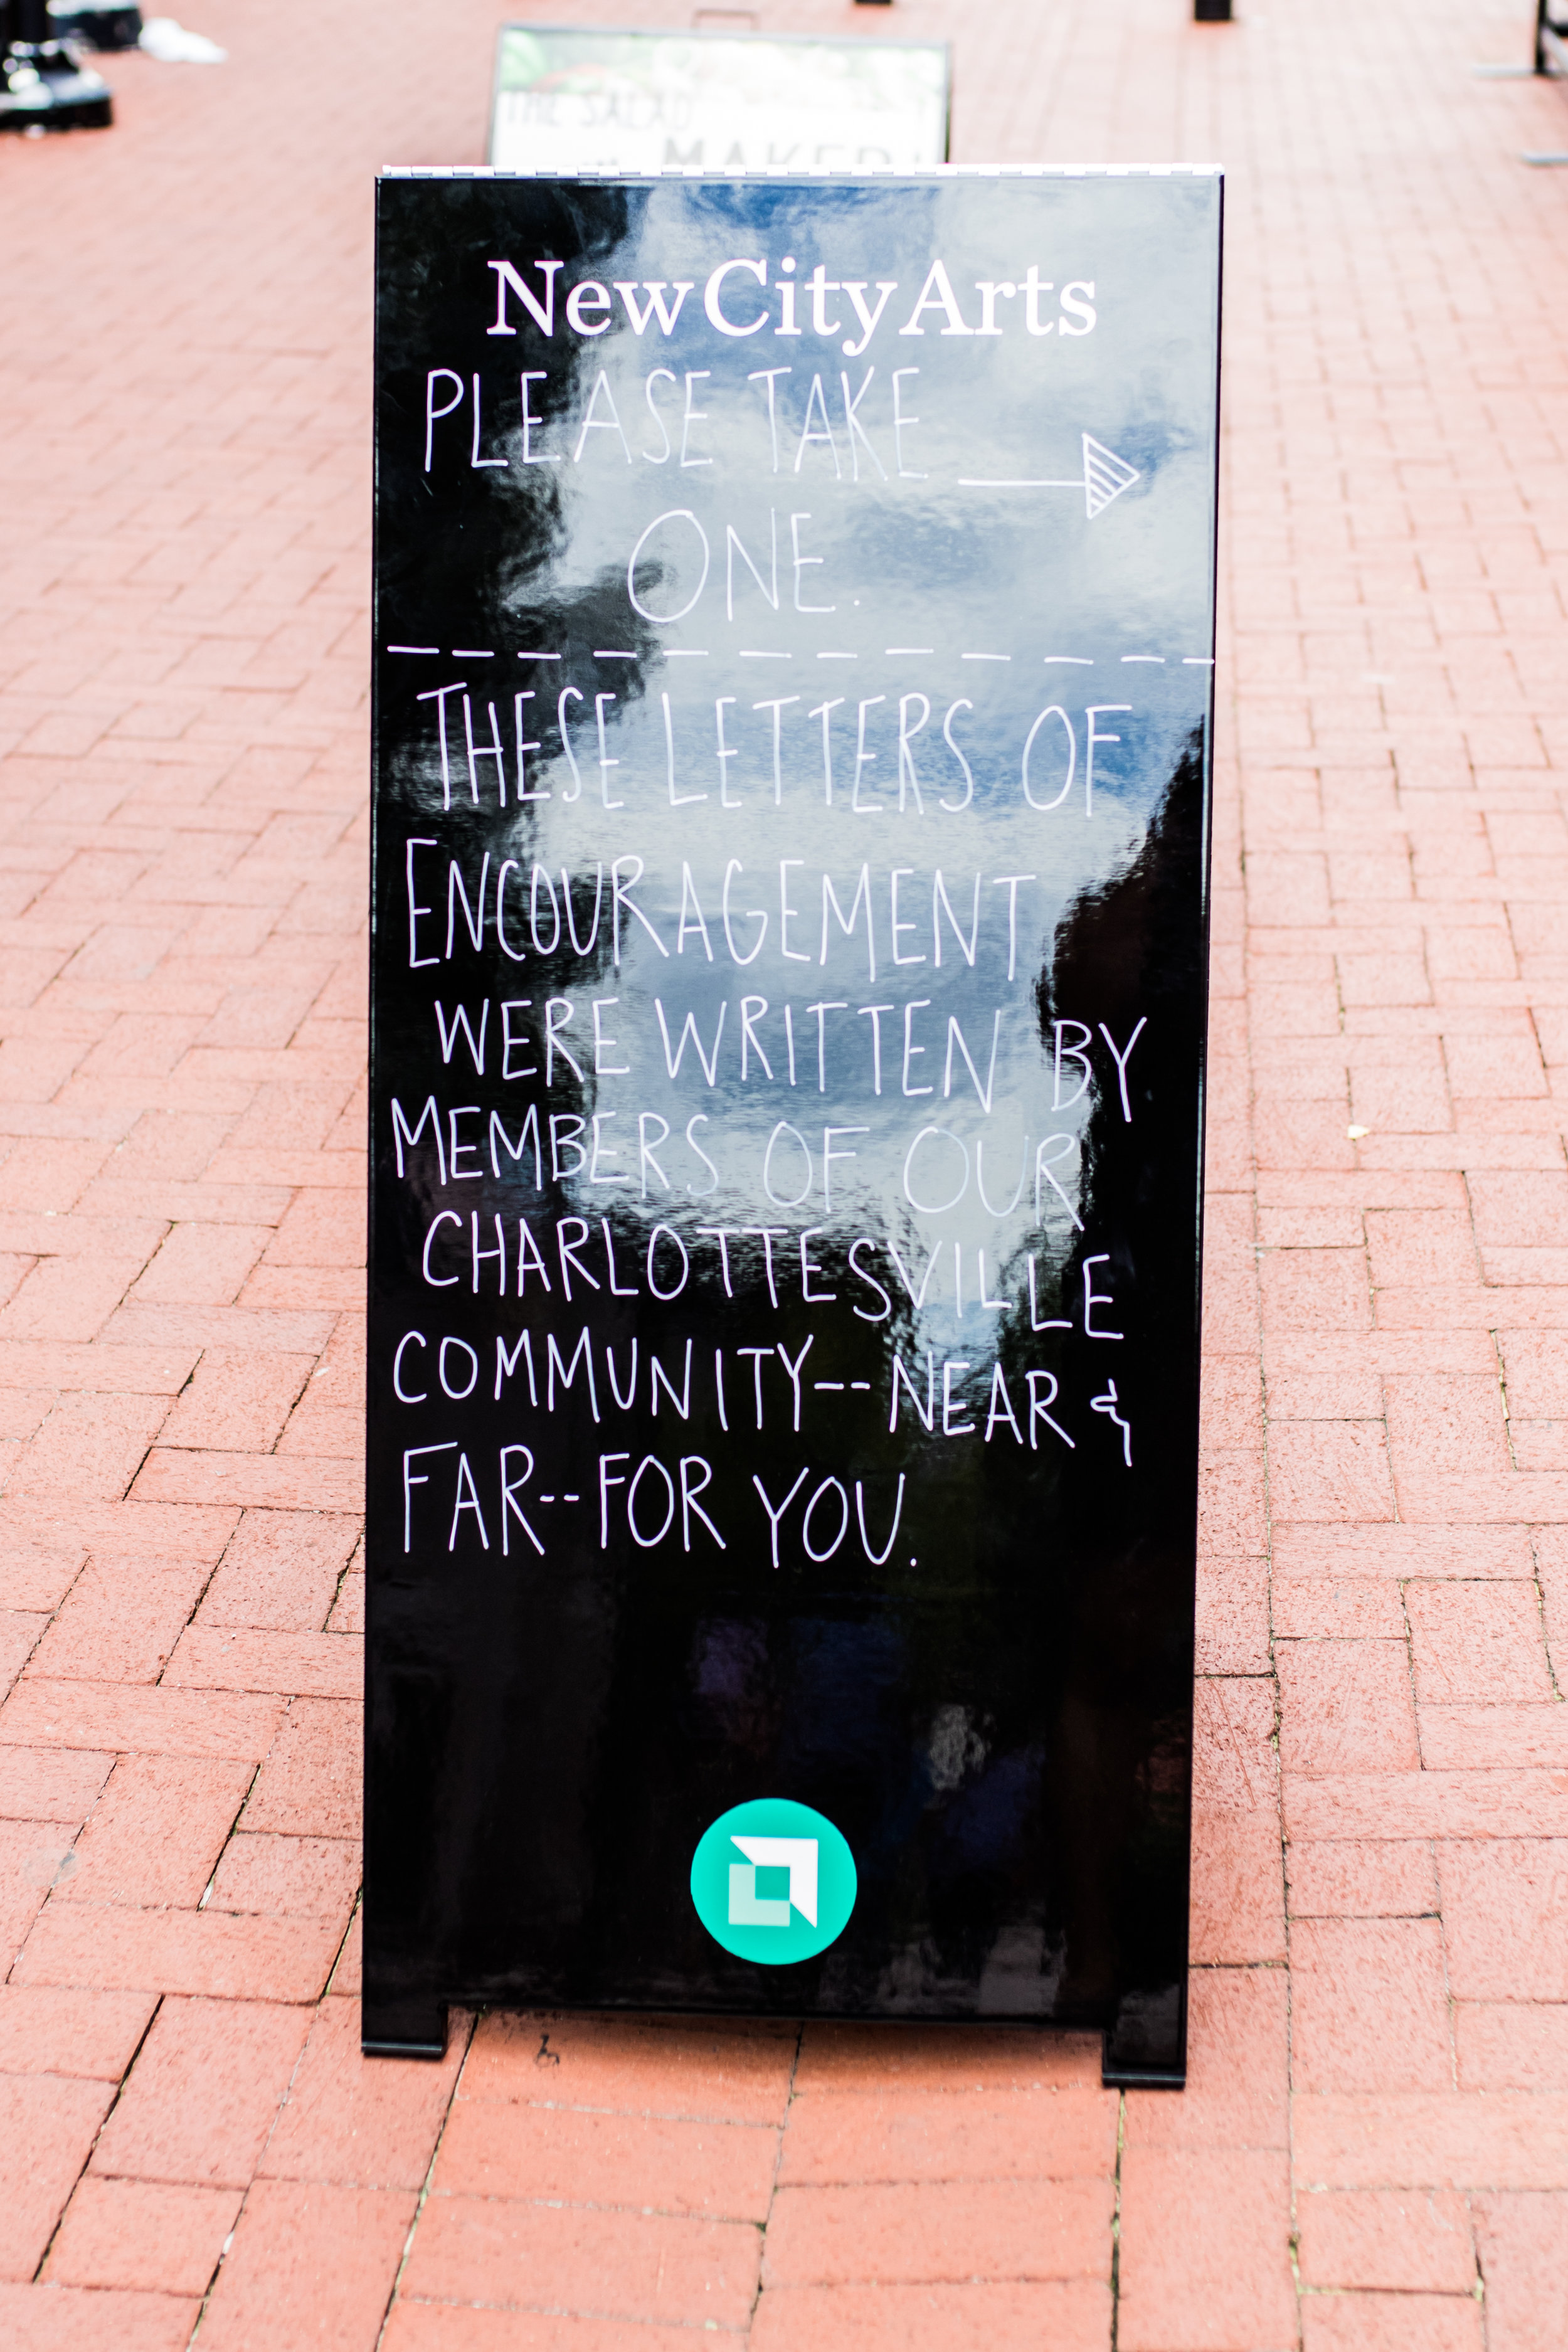 THE SALAD
MAKER!
NewCityArts
PLEASE TAKE
ONE.
THESE LETTERS OF
ENCOURAGEMENT
WERE WRITTEN BY
MEMBERS OF OUR
CHARLOTTESVILLE
COMMUNITY--NEAR &
FAR--FOR YOU.